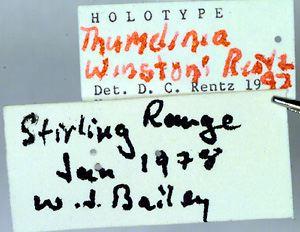 HOLOTYPE
Thumelinia
winstoni Rentz
Det. D. C. Rentz 1992
Stirling Range
Jan 1978
W. J. Bailey